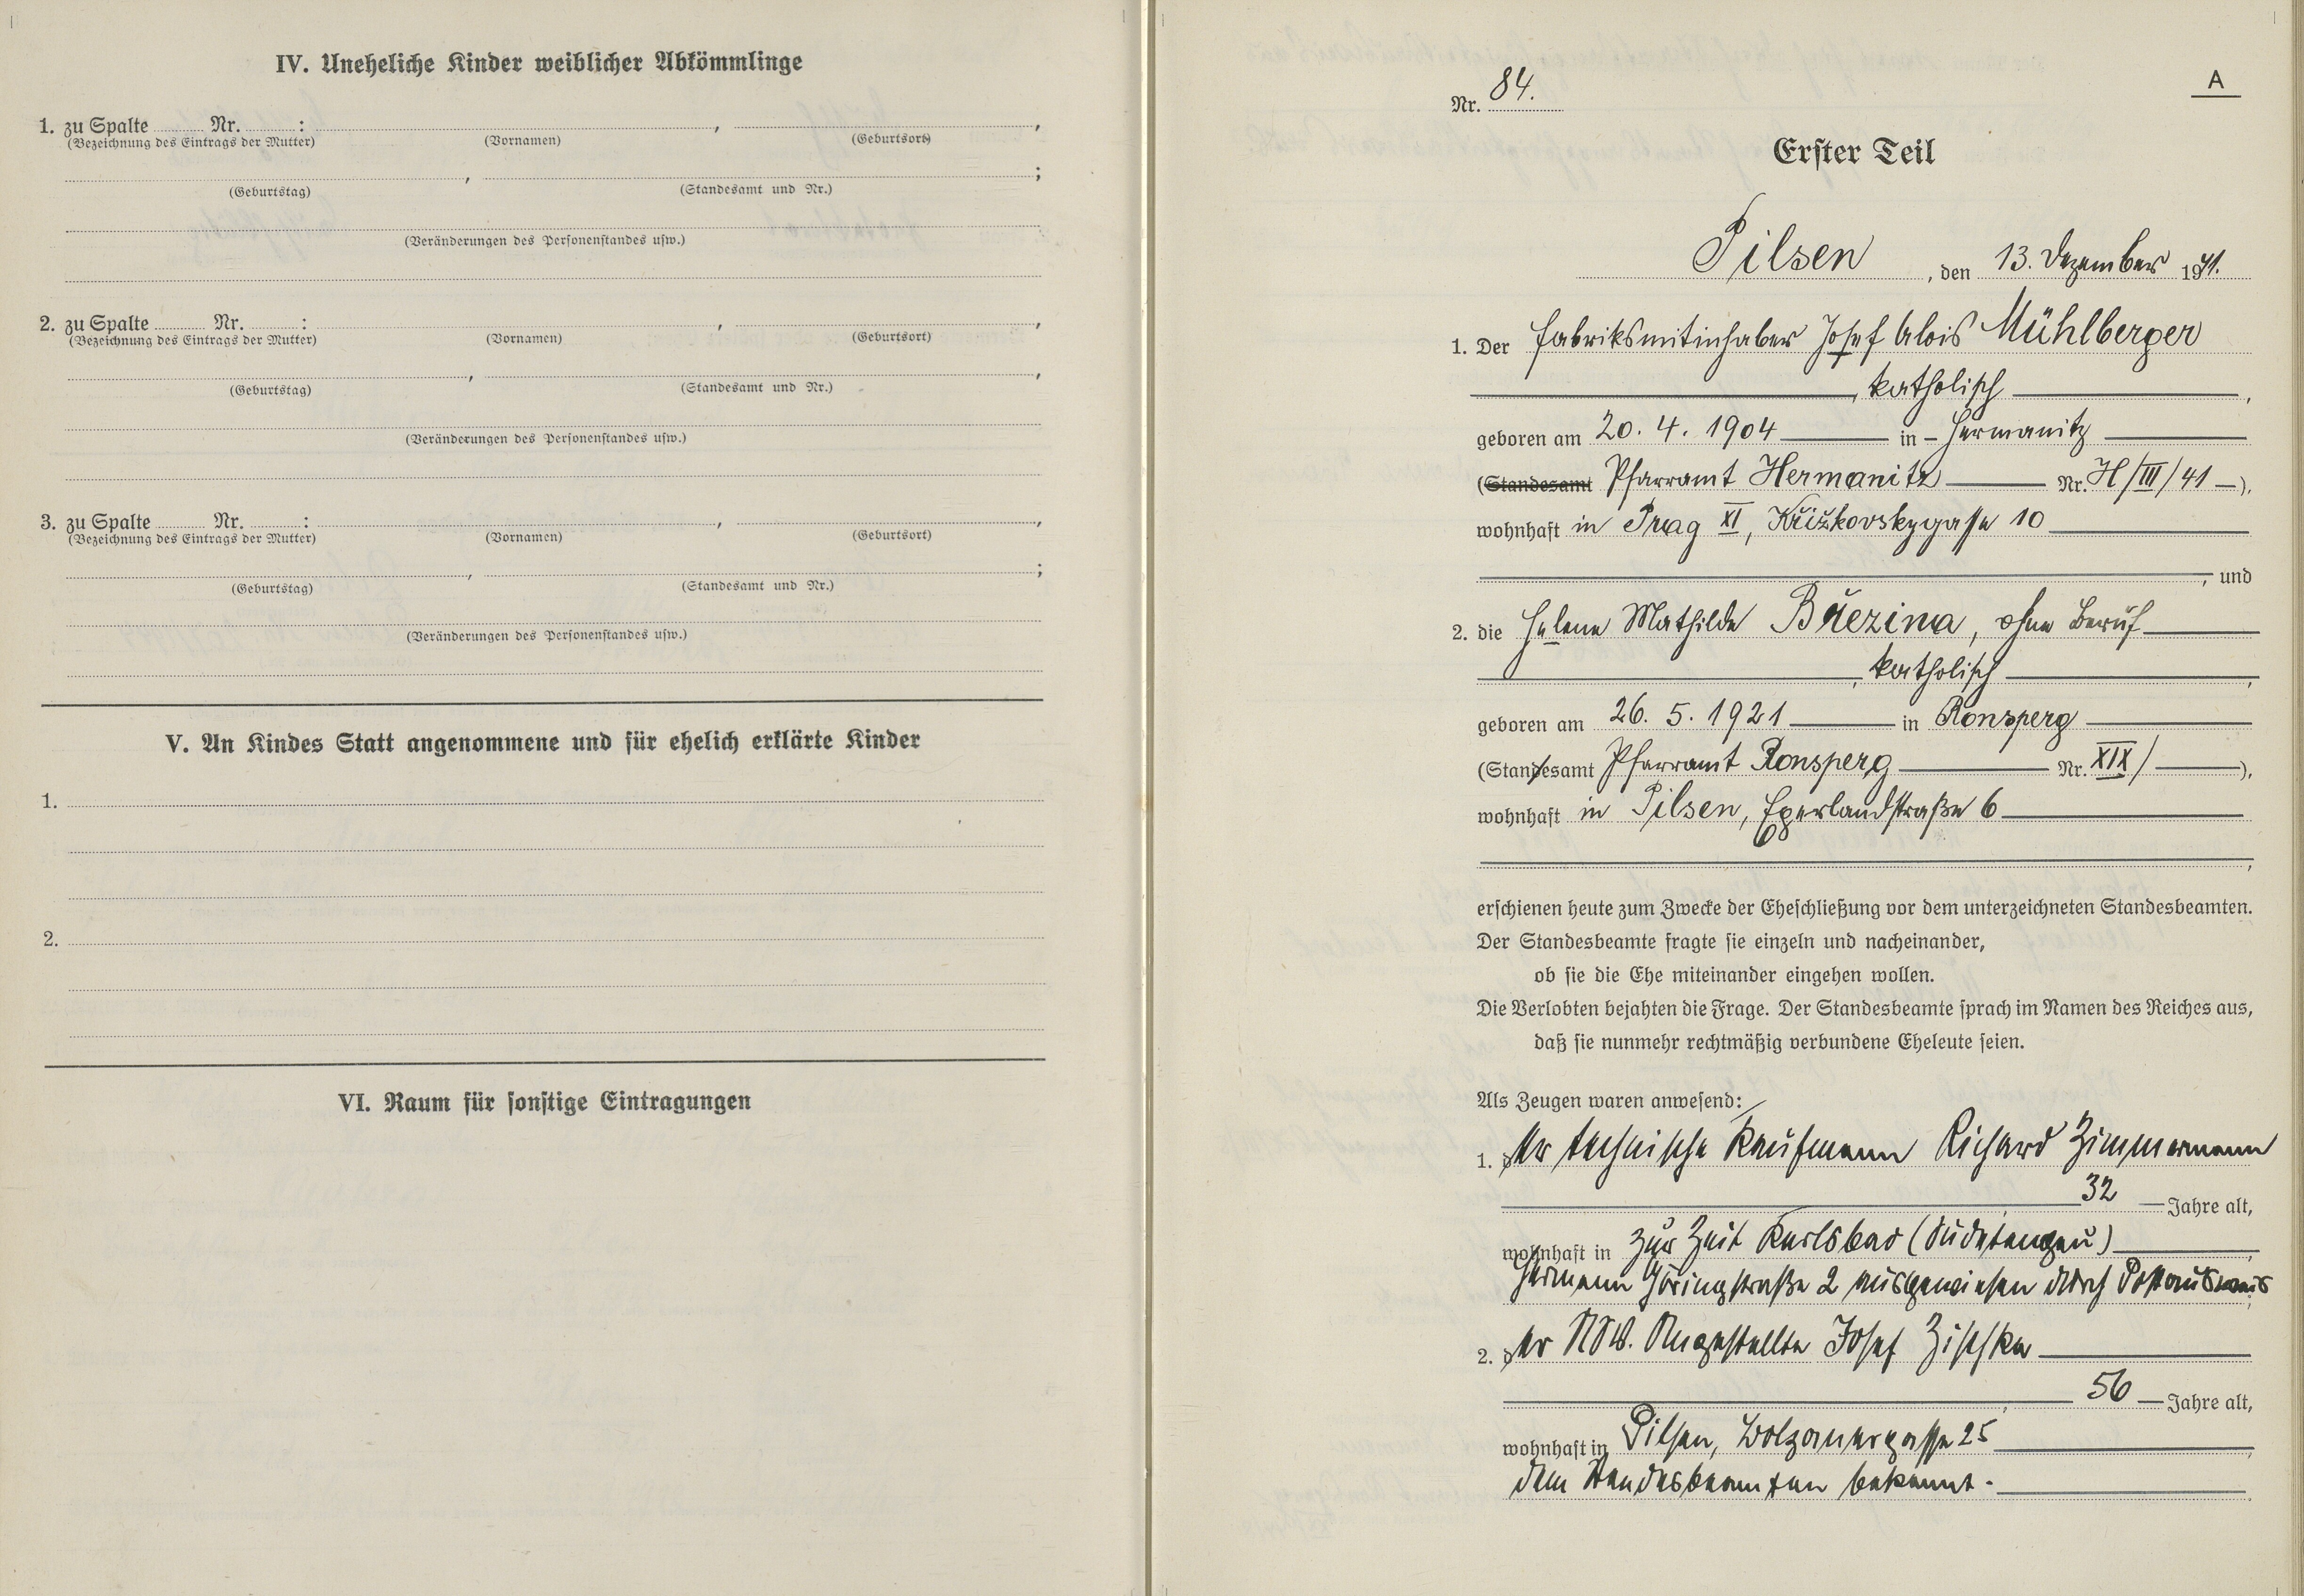 IV. Uneheliche Kinder weiblicher Abkömmlinge
1. zu Spalte Nr. : , ,
(Bezeichnung des Eintrags der Mutter) (Vornamen) (Geburtsort)
, ;
(Geburtstag) (Standesamt und Nr.)
(Veränderungen des Personenstandes usw.)
2. zu Spalte Nr. : , ,
(Bezeichnung des Eintrags der Mutter) (Vornamen) (Geburtsort)
, ,
(Geburtstag) (Standesamt und Nr.)
(Veränderungen des Personenstandes usw.)
3. zu Spalte Nr. : , ,
(Bezeichnung des Eintrags der Mutter) (Vornamen) (Geburtsort)
, ;
(Geburtstag) (Standesamt und Nr.)
(Veränderungen des Personenstandes usw.)
V. An Kindes Statt angenommene und für ehelich erklärte Kinder
1.
2.
VI. Raum für sonstige Eintragungen
A
Nr. 84.
Erster Teil
Pilsen, den 13. Dezember 1941.
1. Der Fabriksmitinhaber Josef Alois Mühlberger
, katholisch ,
geboren am 20. 4. 1904 in Hermanitz
(Standesamt Pfarramt Hermanitz Nr. H/III/41 ),
wohnhaft in Prag XI, Křižkovskygasse 10
, und
2. die Helene Mathilde Březina, ohne Beruf
, katholisch ,
geboren am 26. 5. 1921 in Ronsperg
(Standesamt Pfarramt Ronsperg Nr. XIX/ ),
wohnhaft in Pilsen, Egerlandstraße 6
,
erschienen heute zum Zwecke der Eheschließung vor dem unterzeichneten Standesbeamten.
Der Standesbeamte fragte sie einzeln und nacheinander,
ob sie die Ehe miteinander eingehen wollen.
Die Verlobten bejahten die Frage. Der Standesbeamte sprach im Namen des Reiches aus,
daß sie nunmehr rechtmäßig verbundene Eheleute seien.
Als Zeugen waren anwesend:
1. der technische Kaufmann Richard Zimmermann
32 Jahre alt,
wohnhaft in zur Zeit Karlsbad (Sudetengau)
Hermann Göringstraße 2 ausgewiesen durch Postausweis
2. der Angestellte Josef Zischka
56 Jahre alt,
wohnhaft in Pilsen, Bolzanogasse 25
dem Standesbeamten bekannt.